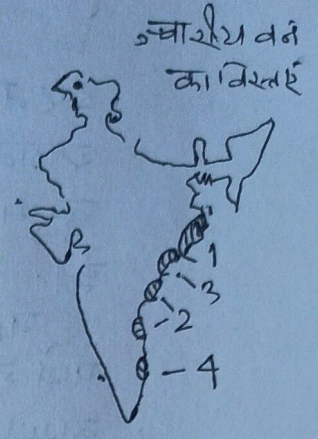 ज्वारीय वन
का विस्तार
1
3
2
4